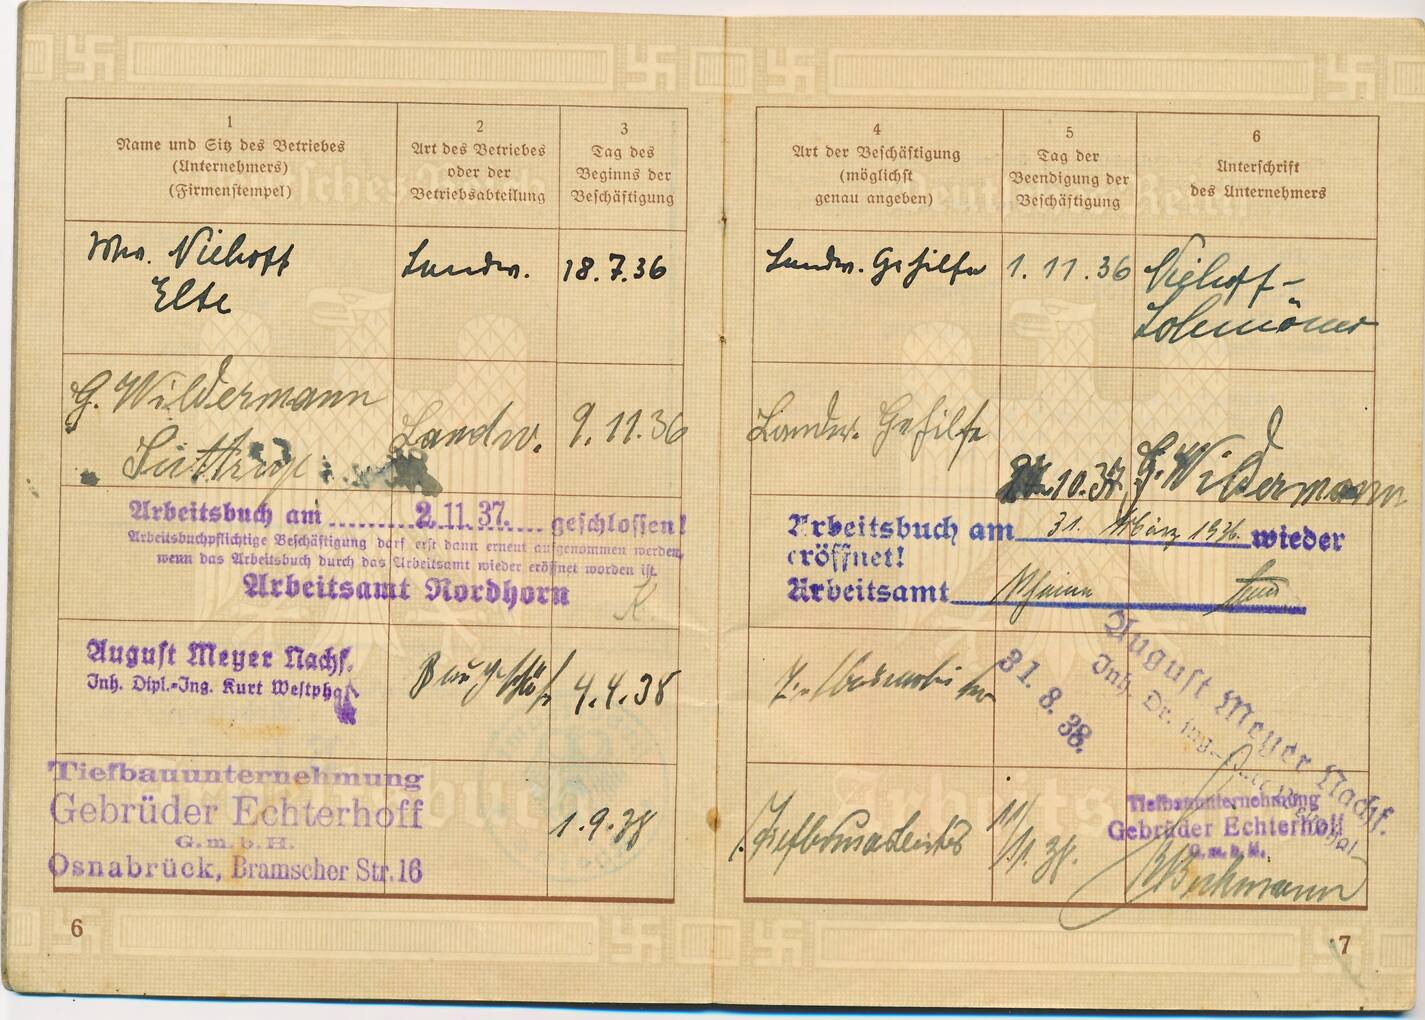 1
Name und Sitz des Betriebes
(Unternehmers)
(Firmenstempel)
2
Art des Betriebes
oder der
Betriebsabteilung
3
Tag des
Beginns der
Beschäftigung
4
Art der Beschäftigung
(möglichst
genau angeben)
5
Tag der
Beendigung der
Beschäftigung
6
Unterschrift
des Unternehmers
Niehoff
Elte
Landw.
18.7.36
Landw. Gehilfe
1.11.36
Niehoff-
G. Wildermann
Suttrup
Landw.
9.11.36
Landw. Gehilfe
10.37
G. Wildermann
Arbeitsbuch am 2.11.37. geschlossen!
Arbeitsbuchpflichtige Beschäftigung darf erst dann erneut aufgenommen werden,
wenn das Arbeitsbuch durch das Arbeitsamt wieder eröffnet worden ist.
Arbeitsamt Nordhorn
K.
Arbeitsbuch am 31. März wieder
eröffnet!
Arbeitsamt Rheine
August Meyer Nachf.
Inh. Dipl.-Ing. Kurt Westphal
Baugeschäft
4.4.38
Tiefbauarbeiter
31.8.38.
August Meyer Nachf.
Inh. Dr. Ing.
Tiefbauunternehmung
Gebrüder Echterhoff
G.m.b.H.
Osnabrück, Bramscher Str. 16
1.9.38
Tiefbauarbeiter
11/11.38.
Tiefbauunternehmung
Gebrüder Echterhoff
G.m.b.H.
6
7